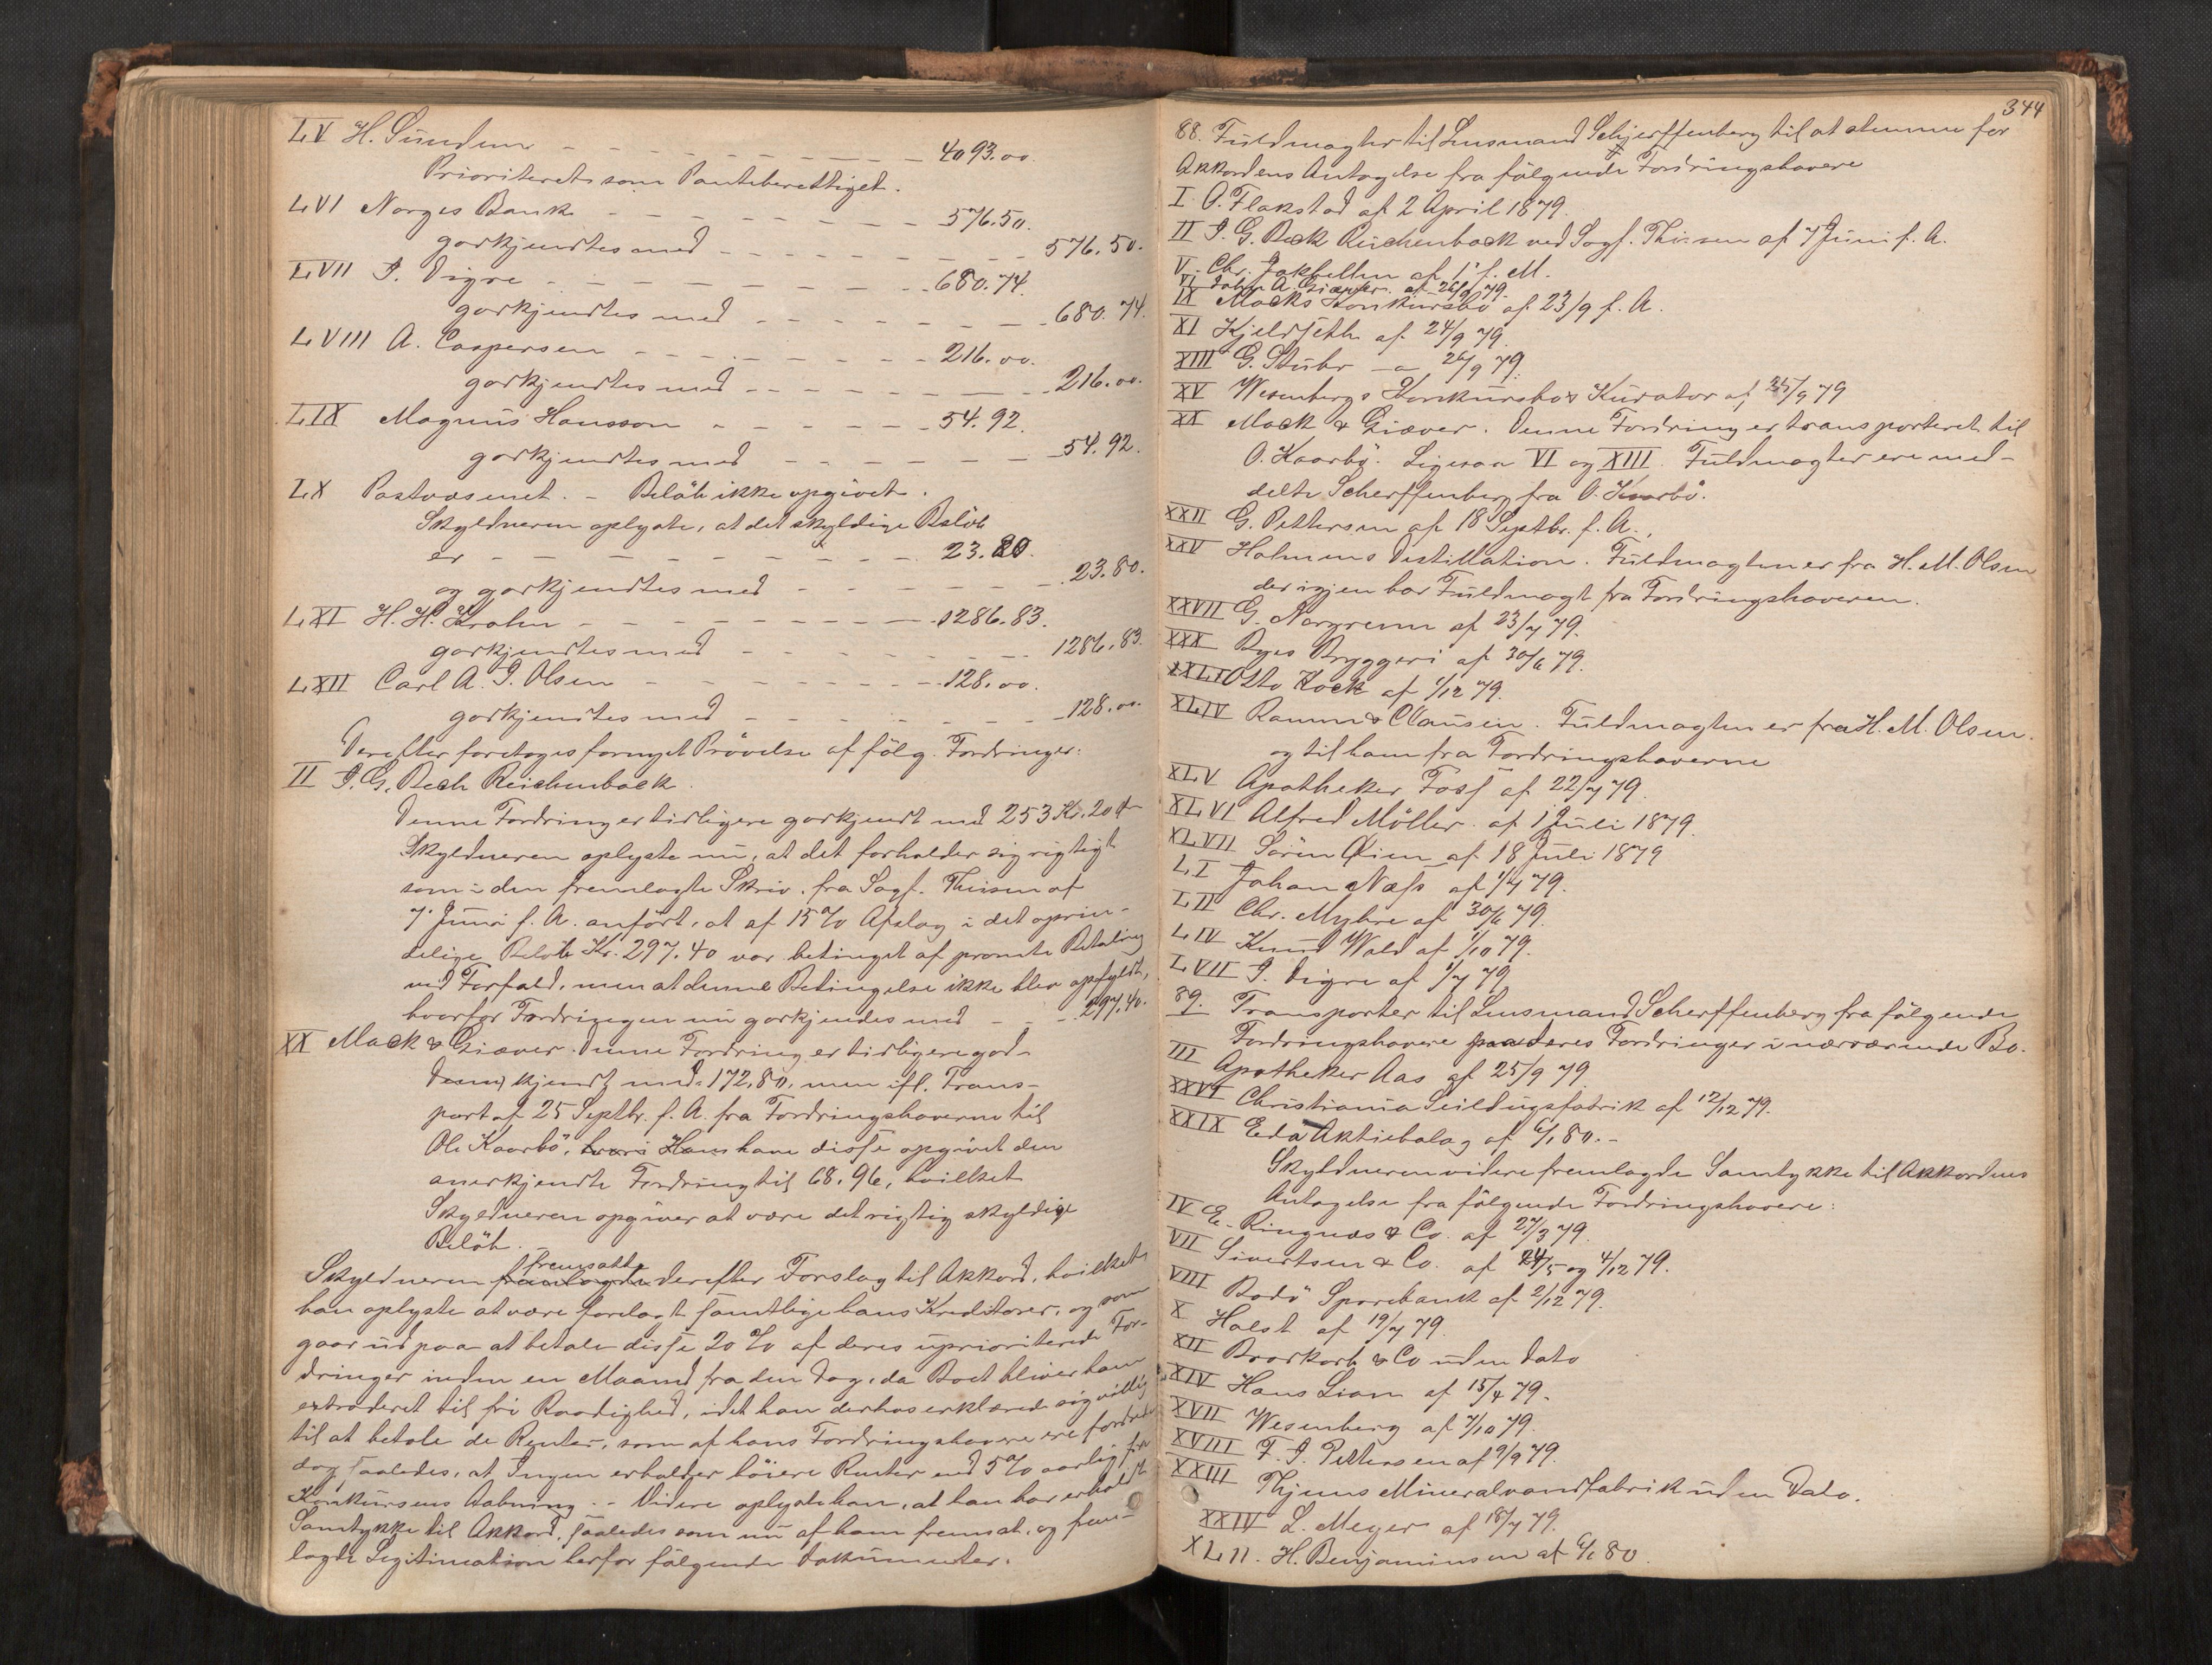 LV H. Sundem - - - - - - - - - - 4093.00.
Prioriteret som Panteberettiget.
LVI Norges Bank - - - - - - - - 576.50.
godkjendtes med - - - - - - - - 576.50.
LVII I. Digre - - - - - - - - - 680.74.
godkjendtes med - - - - - - - 680.74.
LVIII A. Caspersen - - - - - - - 216.00.
godkjendtes med - - - - - - - 216.00.
LIX Magnus Hansson - - - - - - 54.92.
godkjendtes med - - - - - - 54.92.
LX Postvæsenet. - Beløb ikke opgivet.
Skyldneren oplyste, at det skyldige Beløb
er - - - - - - - - - 23.80.
og godkjendtes med - - - - - - 23.80.
LXI H. H. Krohn - - - - - - - - 1286.83.
godkjendtes med - - - - - - - 1286.83.
LXII Carl A. I. Olsen - - - - - - - 128.00.
godkjendtes med - - - - - - - 128.00.
Derefter foretoges fornyet Prøvelse af følg. Fordringer:
II I. G. Bech Reichenback.
Denne Fordring er tidligere godkjendt med 253 Kr. 20 Ø
Skyldneren oplyste nu, at det forholder sig rigtigt
som i den fremlagte Skriv. fra Sagf. Thiisen af
7. Juni f. A. anført, at af 15% Afslag i det oprin-
delige Beløb Kr. 297.40 var betinget af promte Betaling
ved Forfald, men at denne Betingelse ikke blev opfyldt,
hvorfor Fordringen nu godkjendes med - - - 297.40.
XX Mack & Giæver. Denne Fordring er tidligere god-
kjendt med 172,80, men ifl. Trans-
port af 25 Septbr. f. A. fra Fordringshaverne til
Ole Kaarbø, have disse opgivet den
anerkjendte Fordring til 68.96, hvilket
Skyldneren opgiver at være det rigtig skyldige
Beløb.
Skyldneren fremsatte derefter Forslag til Akkord, hvilket
han oplyste at være forelagt samtlige hans Kreditorer, og som
gaar ud paa at betale disse 20 % af deres uprioriterede For-
dringer inden en Maaned fra den Dag, da Boet bliver ham
extraderet til fri Raadighed, idet han derhos erklærede sig villig
til at betale de Renter, som af hans Fordringshavere ere fordrede
dog saaledes, at Ingen erholder høiere Renter end 5% aarlig fra
Konkursens Aabning. - Videre oplyste han, at han har erholdt
Samtykke til Akkord, saaledes som nu af ham fremsat, og frem-
lagde Legitimation herfor følgende Dokumenter.
344
88. Fuldmagter til Lensmand Schjerffenberg til at stemme for
Akkordens Antagelse fra følgende Fordringshavere
I O. Flakstad af 2 April 1879.
II I. G. Beck Reichenback ved Sagf. Thiisen af 7 Juni f. A.
V Chr. Jakhelln af 1' f. M.
VI John A. Giæver af 26/9 79.
IX Macks Konkursbo af 23/9 f. A.
XI Kjeldseth af 24/9 79.
XIII G. Stuhr — 26/9 79.
XV Wesenbergs Konkursbos Kurator af 25/9 79
XX Mack & Giæver. Denne Fordring er transporteret til
O. Kaarbø. Ligesaa VI og XIII. Fuldmagter ere med-
delte Scherffenberg fra O. Kaarbø.
XXII G. Pettersen af 18 Septbr. f. A.
XXV Holmens Destillation. Fuldmagten er fra H. M. Olsen
der igjen har Fuldmagt fra Fordringshaveren.
XXVII G. Norgrenn af 23/7 79.
XXX Ryes Bryggeri af 30/6 79.
XXLI Otto Kock af 1/12 79.
XLIV Ramm & Clausen. Fuldmagten er fra H. M. Olsen.
og til ham fra Fordringshaverne
XLV Apotheker Foss af 22/7 79
XLVI Alfred Møller af 1 Juli 1879.
XLVII Søren Øien af 18 Juli 1879
LI Johan Næss af 1/7 79.
LII Chr. Myhre af 30/6 79.
LIV Knud Wold af 1/10 79.
LVII I. Digre af 1/7 79
89. Transporter til Lensmand Scherffenberg fra følgende
Fordringshavere paa deres Fordringer i nærværende Bo.
III Apotheker Aas af 25/9 79.
XXVI Christiania Seildugsfabrik af 12/12 79.
XXIX Eda Aktiebolag af 6/1 80. -
Skyldneren videre fremlagde Samtykke til Akkordens
Antagelse fra følgende Fordringshavere:
IV E. Ringnæs & Co. af 27/3 79.
VII Sivertsen & Co. af 24/5 og 4/12 79.
VIII Bodø Sparebank af 2/12 79.
X Holst af 19/7 79.
XII Brodkorb & Co uden Dato
XIV Hans Liam af 15/4 79.
XVII Wesenberg af 7/10 79.
XVIII F. I. Pettersen af 9/9 79.
XXIII Thjems Mineralvandfabrik uden Dato.
XXIV L. Meyer af 18/7 79.
XLII. H. Benjaminsen af 6/1 80.